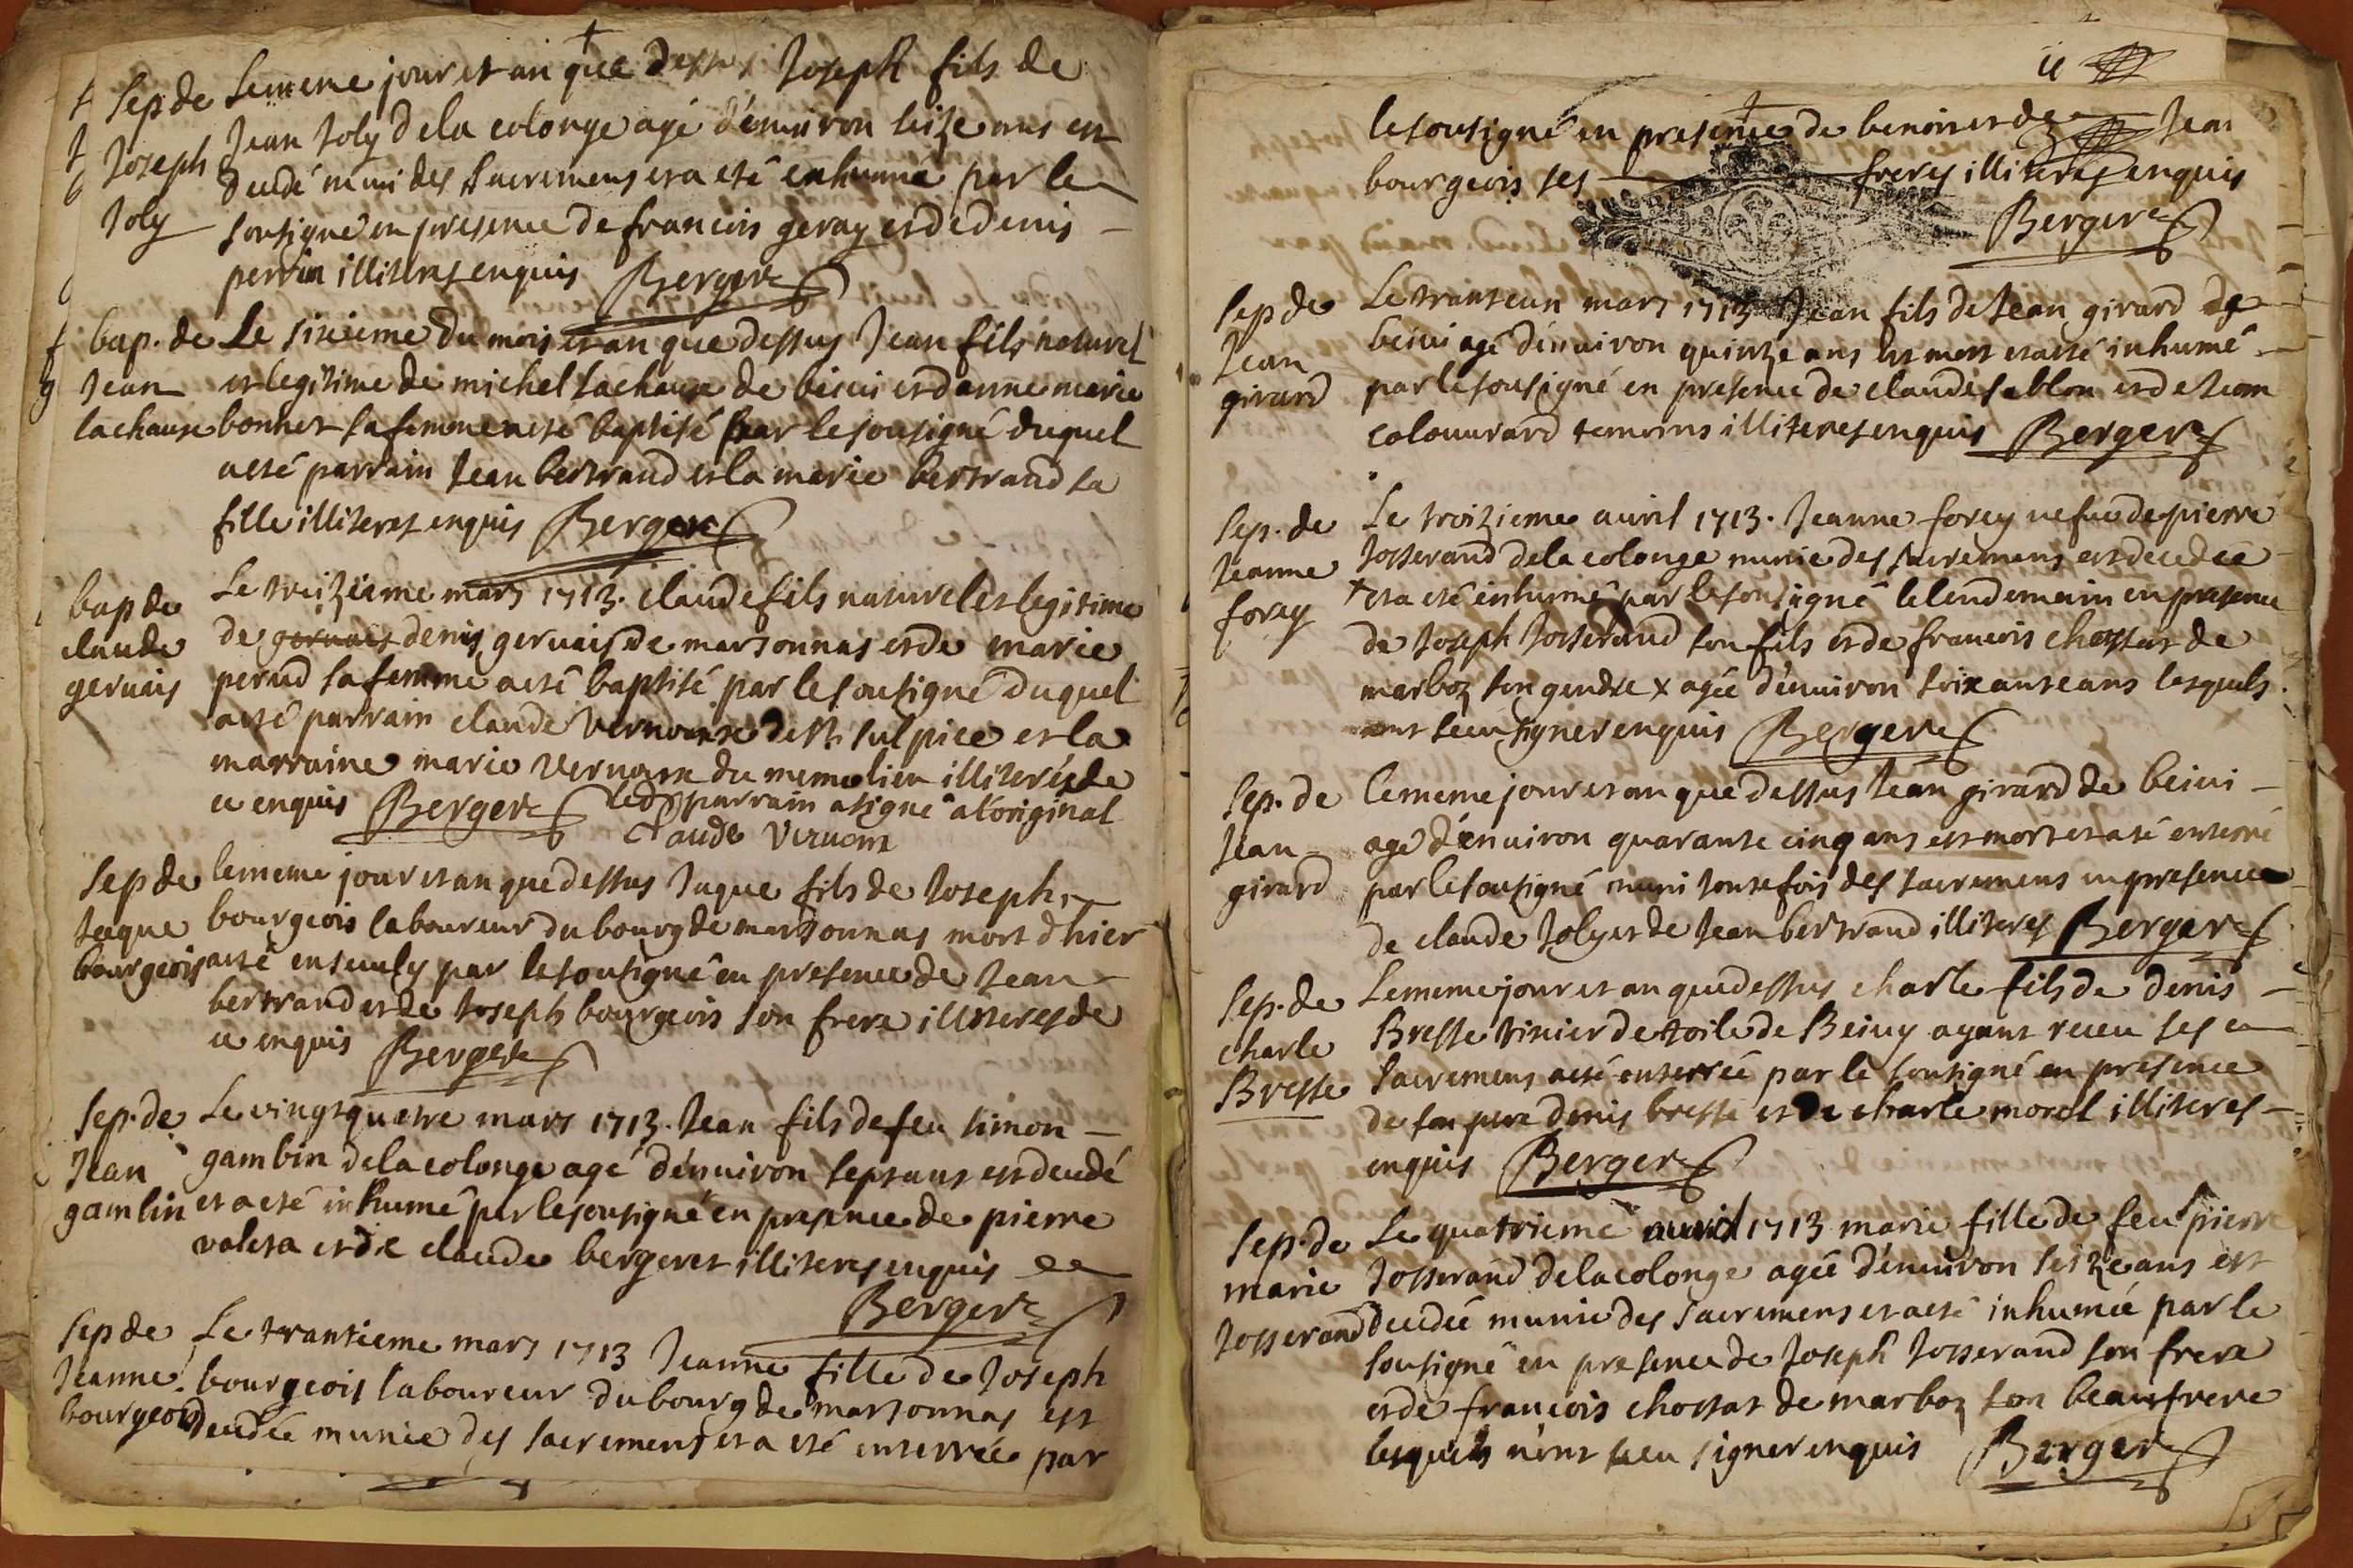 Sep de
Joseph
Joly
Le meme jour et an que dessus Joseph fils de
Jean Joly de la colonge agé d'enuiron seize ans est
decedé muni des sacremens et a eté enhumé par le
sousigné en presence de francois geray et de denis
perrin illiteres enquis Berger
bap. de
Jean
lachause
Le sixieme du mois et an que dessus Jean fils naturel
et legitime de michel lachause de beiui et d anne marie
bonnet sa femme a eté baptisé par le sousigné duquel
a eté parrain Jean bertrand et la marie bertrand sa
fille illiteres enquis Berger
bap de
claude
geruais
Le treizieme mars 1713. claude fils naturel et legitime
de geruais denis geruais de marsonnas et de marie
perud sa femme a eté baptisé par le sousigné duquel
a eté parrain claude Vernoux de st sulpice et la
marraine marie Vernoux du meme lieu illiterés de
ce enquis Berger led parrain a signé a l'original
claude Vernoux
Sep de
Jaque
bourgeois
le meme jour et an que dessus Jaque fils de Joseph
bourgeois laboureur du bourg de marsonnas mort d hier
a eté enseuely par le sousigné en presence de Jean
bertrand et de Joseph bourgeois son frere illiteres de
ce enquis Berger
Sep. de
Jean
gambin
Le vingt quatre mars 1713. Jean fils de feu simon
gambin de la colonge agé d'enuiron sept ans est decedé
et a eté inhumé par le sousigné en presence de pierre
valeta et de claude bergeret illiteres enquis
Berger
Sep de
Jeanne
bourgeois
Le trantieme mars 1713 Jeanne fille de Joseph
bourgeois laboureur du bourg de marsonnas est
decedée munie des sacremens et a eté enterrée par
ii
le sousigné en presence de benoit et de Jean
bourgeois ses freres illiteres enquis
Berger
Sep de
Jean
girard
Le trant e un mars 1713 Jean fils de Jean girard de
beiui agé d'enuiron quintze ans est mort et a eté inhumé
par le sousigné en presence de claude sablon et de Jean
colouurard temoins illiteres enquis Berger
Sep. de
Jeanne
foray
Le troizieme auril 1713. Jeanne forey uefue de pierre
Josserand de la colonge munie des sacremens est decedée
+ et a eté inhumé par le sousigné le lendemain en presence
de Joseph Josserand son fils et de francois chossat de
marboz son gendre x agée d'enuiron soixante ans lesquels
ont sceu signer enquis Berger
Sep. de
Jean
girard
le meme jour et an que dessus Jean girard de beiui
agé d'enuiron quarante cinq ans est mort et a eté enterré
par le sousigné muni toutefois des sacremens en presence
de claude Joly et de Jean bertrand illiteres Berger
Sep. de
charle
Bresse
Le meme jour et an que dessus charle fils de denis
Bresse tixier de toile de Beiuy ayant receu ses
sacremens a eté enterrée par le sousigné en presence
de son pere denis bresse et de charle morel illiteres
enquis Berger
Sep. de
marie
Josserand
Le quatrieme auril 1713 marie fille de feu pierre
Josserand de la colonge agée d'enuiron seize ans est
decedée munie des sacremens et a eté inhumée par le
sousigné en presence de Joseph Josserand son frere
et de francois chossat de marboz son beaufrere
lesquels n'ont sceu signer enquis Berger